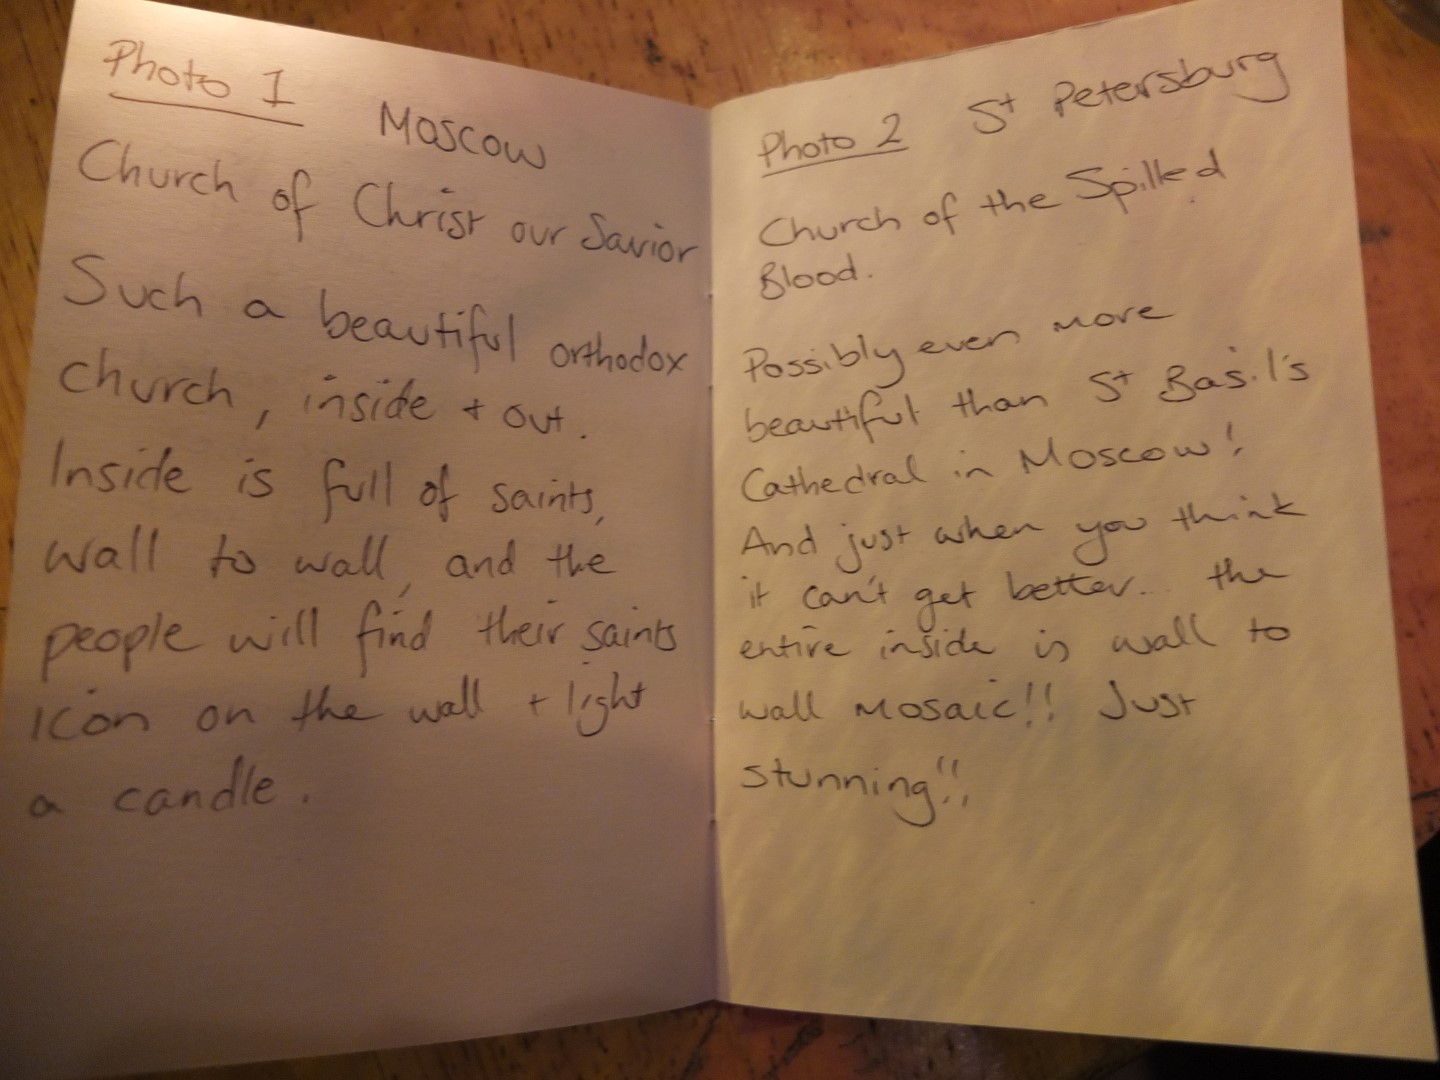 Photo 1 Moscow
Church of Christ our Savior
Such a beautiful orthodox
church, inside + out.
Inside is full of saints,
wall to wall, and the
people will find their saints
icon on the wall + light
a candle.
Photo 2 St Petersburg
Church of the Spilled
Blood.
Possibly even more
beautiful than St Basil's
Cathedral in Moscow!
And just when you think
it can't get better... the
entire inside is wall to
wall mosaic!! Just
stunning!!